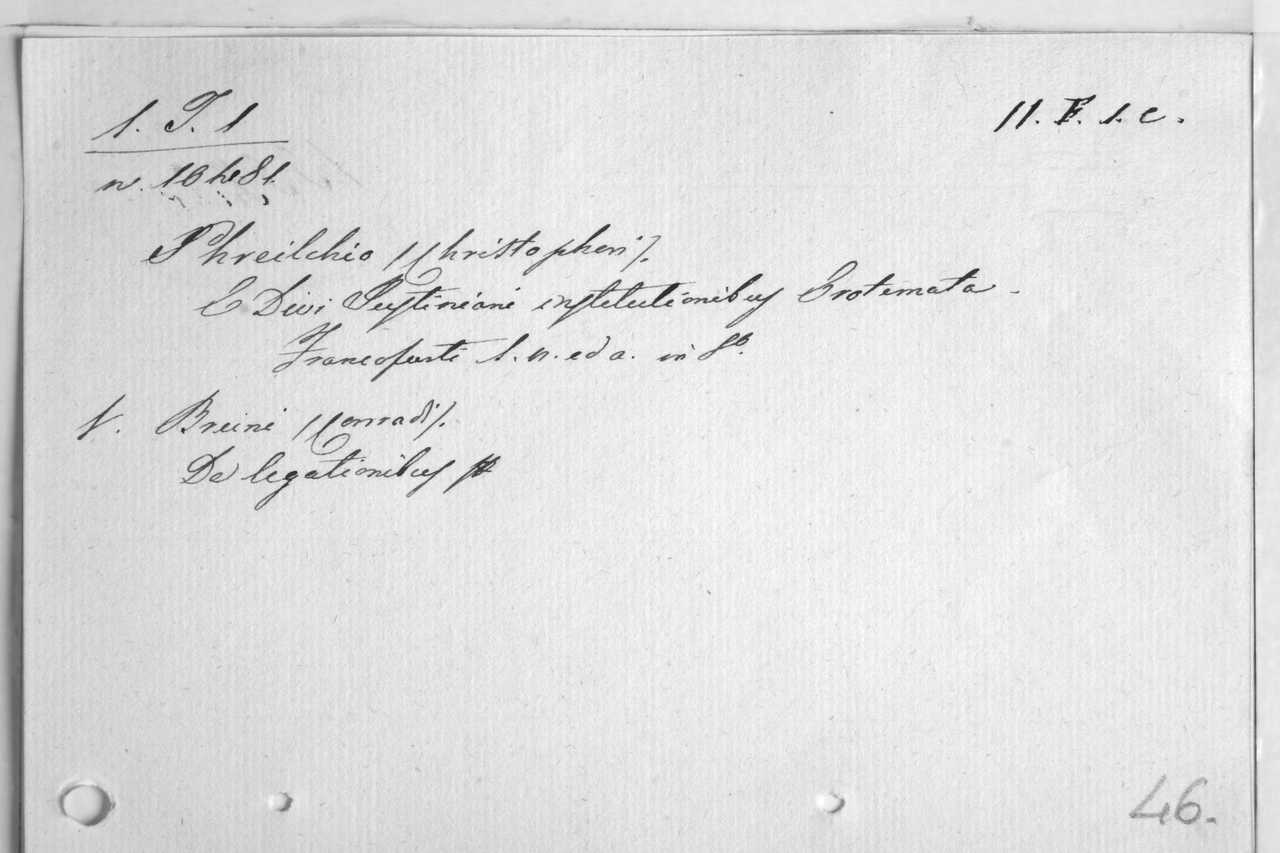 1. T. 1
11. F. 1. c.
n. 10481.
Phreilchio /Christopheri/.
E Divi Justiniani institutionibus Erotemata
Francofurti s. n. ed a. in 8º.
V. Bruni /Conradi/.
De legationibus
46.